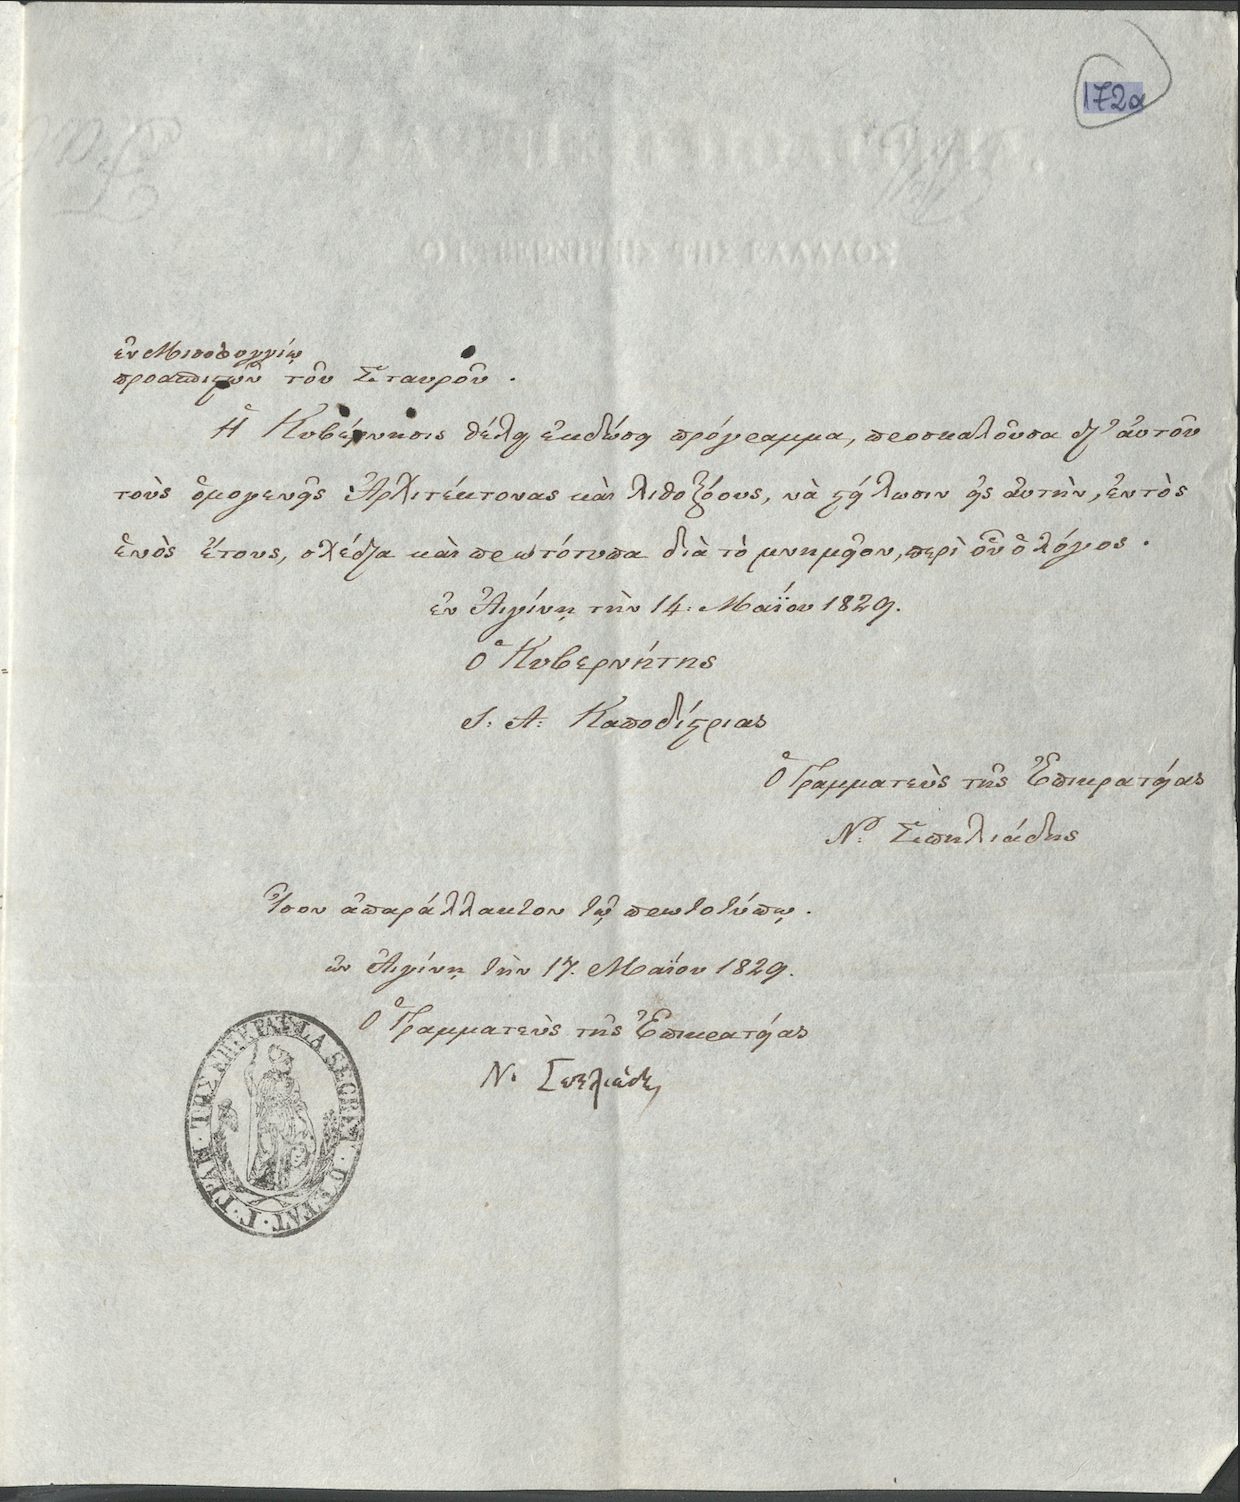 172α
ἐν Μισολογγίῳ
προασπιστῶν τοῦ Σταυροῦ.
Ἡ Κυβέρνησις θέλει ἐκδώσῃ πρόγραμμα, προσκαλοῦσα δι' αὐτοῦ
τοὺς ὁμογενεῖς Ἀρχιτέκτονας καὶ λιθοξόους, νὰ στείλωσιν εἰς αὐτὴν, ἐντὸς
ἑνὸς ἔτους, σχέδια καὶ πρωτότυπα διὰ τὸ μνημεῖον, περὶ οὗ ὁ λόγος.
ἐν Αἰγίνῃ τὴν 14: Μαΐου 1829.
Ὁ Κυβερνήτης
Ι: Α: Καποδίστριας
Ὁ Γραμματεὺς τῆς Ἐπικρατείας
Ν: Σπηλιάδης
Ἴσον ἀπαράλλακτον τῷ πρωτοτύπῳ.
ἐν Αἰγίνῃ τὴν 17. Μαΐου 1829.
Ὁ Γραμματεὺς τῆς Ἐπικρατείας
Ν. Σπηλιάδης